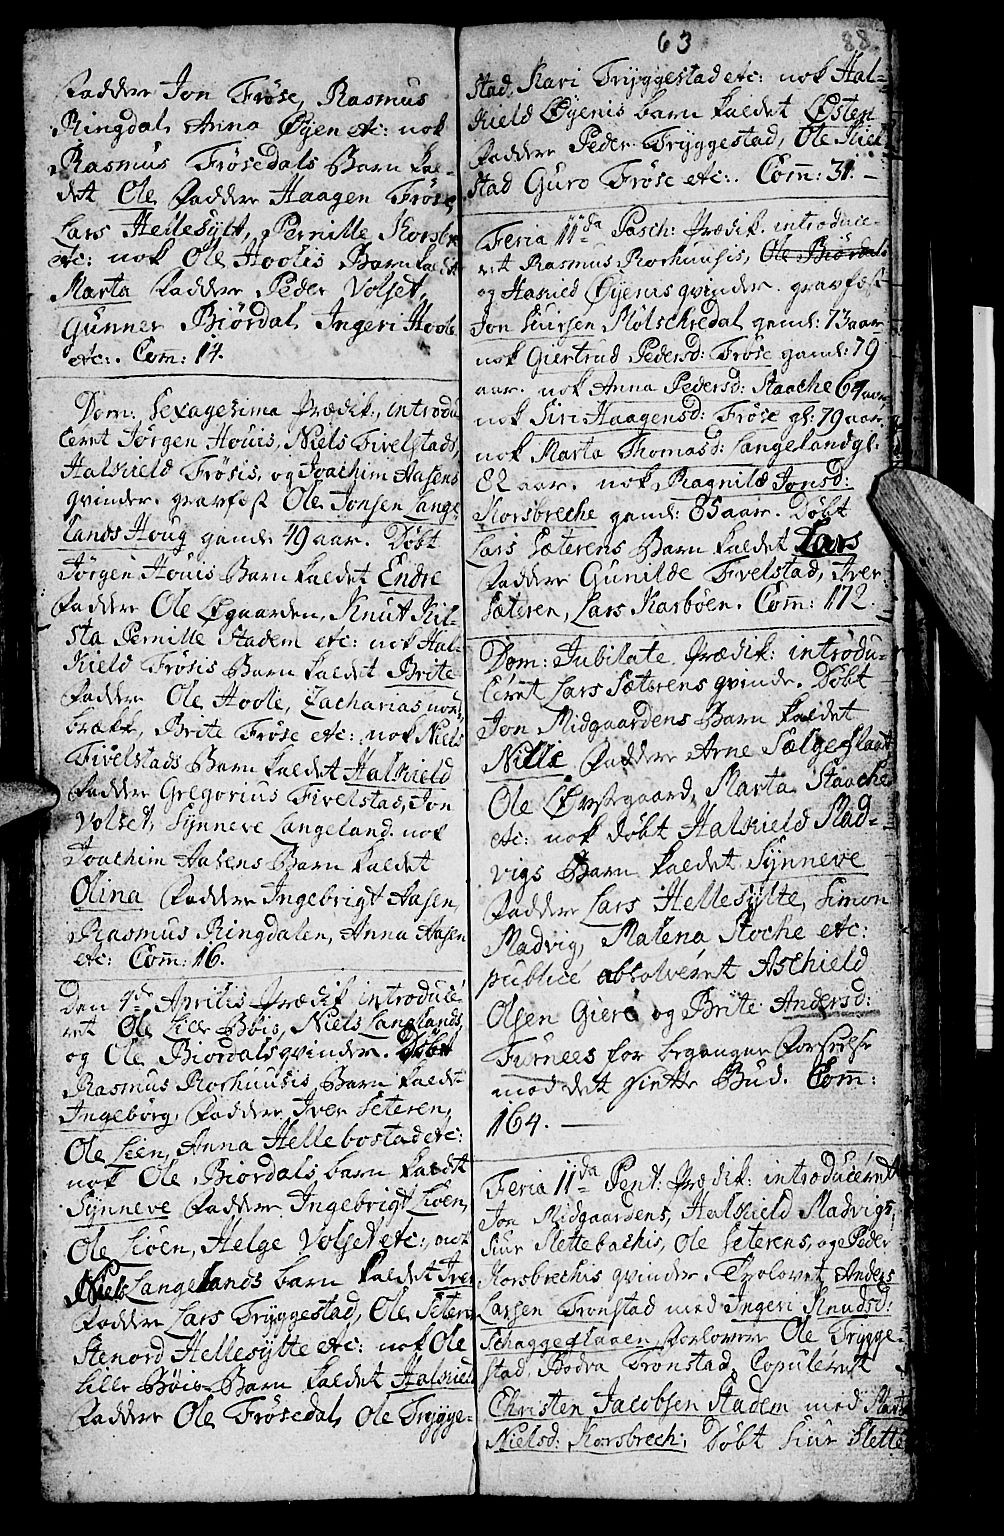 Faddere Jon Frøse, Rasmus
Ringdal, Anna Øyen etc: nok
Rasmus Frøsedals Barn kal-
det Ole Faddere Haagen Frøse,
Lars Hellesylt, Pernille Korsbre
etc: nok Ole Hoolis Barn kaldet
Marta Faddere Peder Volset,
Gunner Biørdal, Ingeri Hoole
etc:. Com: 14.
Dom: Sexagesima Prædik:, introdu
ceret Jørgen Houis, Niels Fivelstads,
Halkield Frøsis, og Joachim Aasens
qvinder. gravfæst Ole Jonsen Lange-
lands Houg gaml: 49 aar. Døbt
Jørgen Houis Barn kaldet Endre
Faddere Ole Øgaarden, Knut Kil-
sta Pernille Stadem etc: nok Hal-
kield Frøsis Barn kaldet Brite
Faddere Ole Hoole, Zacharias nord
bræke, Brite Frøse etc: nok Niels
Fivelstads Barn kaldet Halkield
Faddere Gregorius Fivelstad, Jon
Volset, Synneve Langeland. nok
Joachim Aasens Barn kaldet
Olina Faddere Ingebrigt Aasen,
Rasmus Ringdalen, Anna Aasen
etc: Com: 16.
Den 4de Aprilis Prædik introduce
ret Ole Lille Bøis, Niels Langlands,
og Ole Biordals qvinder. Døbt
Rasmus Rorhuusis Barn kaldt
Ingeborg, Faddere Iver Seteren,
Ole Lien, Anna Hellebostad etc:
nok Ole Biordals barn kaldt
Synneve Faddere Ingebrigt Liøen,
Ole Liøen, Helge Volset etc:, nok
Niels Langelands barn kaldet Iver
Faddere Lars Tryggestad, Ole Seteren
Stenord Hellesylte etc: nok Ole
Lille Bøis Barn kaldet Halkield
Faddere Ole Frøsedal, Ole Trygge-
63 88.
stad, Kari Tryggestad etc: nok Hal-
kield Øyenis barn kaldet Østen
Faddere Peder Tryggestad, Ole Kiel
stad Guro Frøse etc:. Com: 31. -
Feria 11da Pasch: Prædik. introduce-
ret Rasmus Rorhuusis, Ole Biørdals
og Halkield Øyenis qvinder. gravfæst
Jon Siursen Molschredal gaml: 73 aar
nok Giertrud Pedersd: Frøse gaml: 79
aar. nok Anna Pedersd: Staache 64 aar
nok Siri Haagensd: Frøse gl: 79 aar.
nok Marta Thomasd: Langeland gl:
82 aar. nok Ragnild Jonsd:
Korsbreche gaml: 85 aar. Døbt
Lars Sæterens Barn kaldet Lars
Faddere Gunilde Fivelstad, Iver
Sæteren, Lars Karbøen. Com: 172.
Dom: Jubilate Prædik: introdu-
ceret Lars Sæterens qvinde. Døbt
Jon Midgaardens Barn kaldet
Nille Faddere Arne Sælgeflaat
Ole Øvstegaard, Marta Staache
etc: nok døbt Halkield Mad-
vigs Barn kaldet Synneve
Faddere Lars Hellesylte, Simon
Madvig, Malena Stoche etc:
publicè absolveret Aschield
Olsen Giere og Brite Andersd:
Furnees for begangne Forseelse
mod det siette Bud. Com:
164. -
Feria 11da Pent: Prædik: introduceret
Jon Midgaardens, Halkield Madvigs,
Siur Slettebachis, Ole Seterens, og Peder
Korsbrechis qvinder. Trolovet Anders
Larsen Tronstad med Ingeri Knudsd:
Schaggeflaaen Forlovere Ole Trygge-
stad, Bodva Tronstad, Copuleret
Christen Jacobsen Stadem med Marta
Nielsd: Korsbrech; Døbt Siur Slette